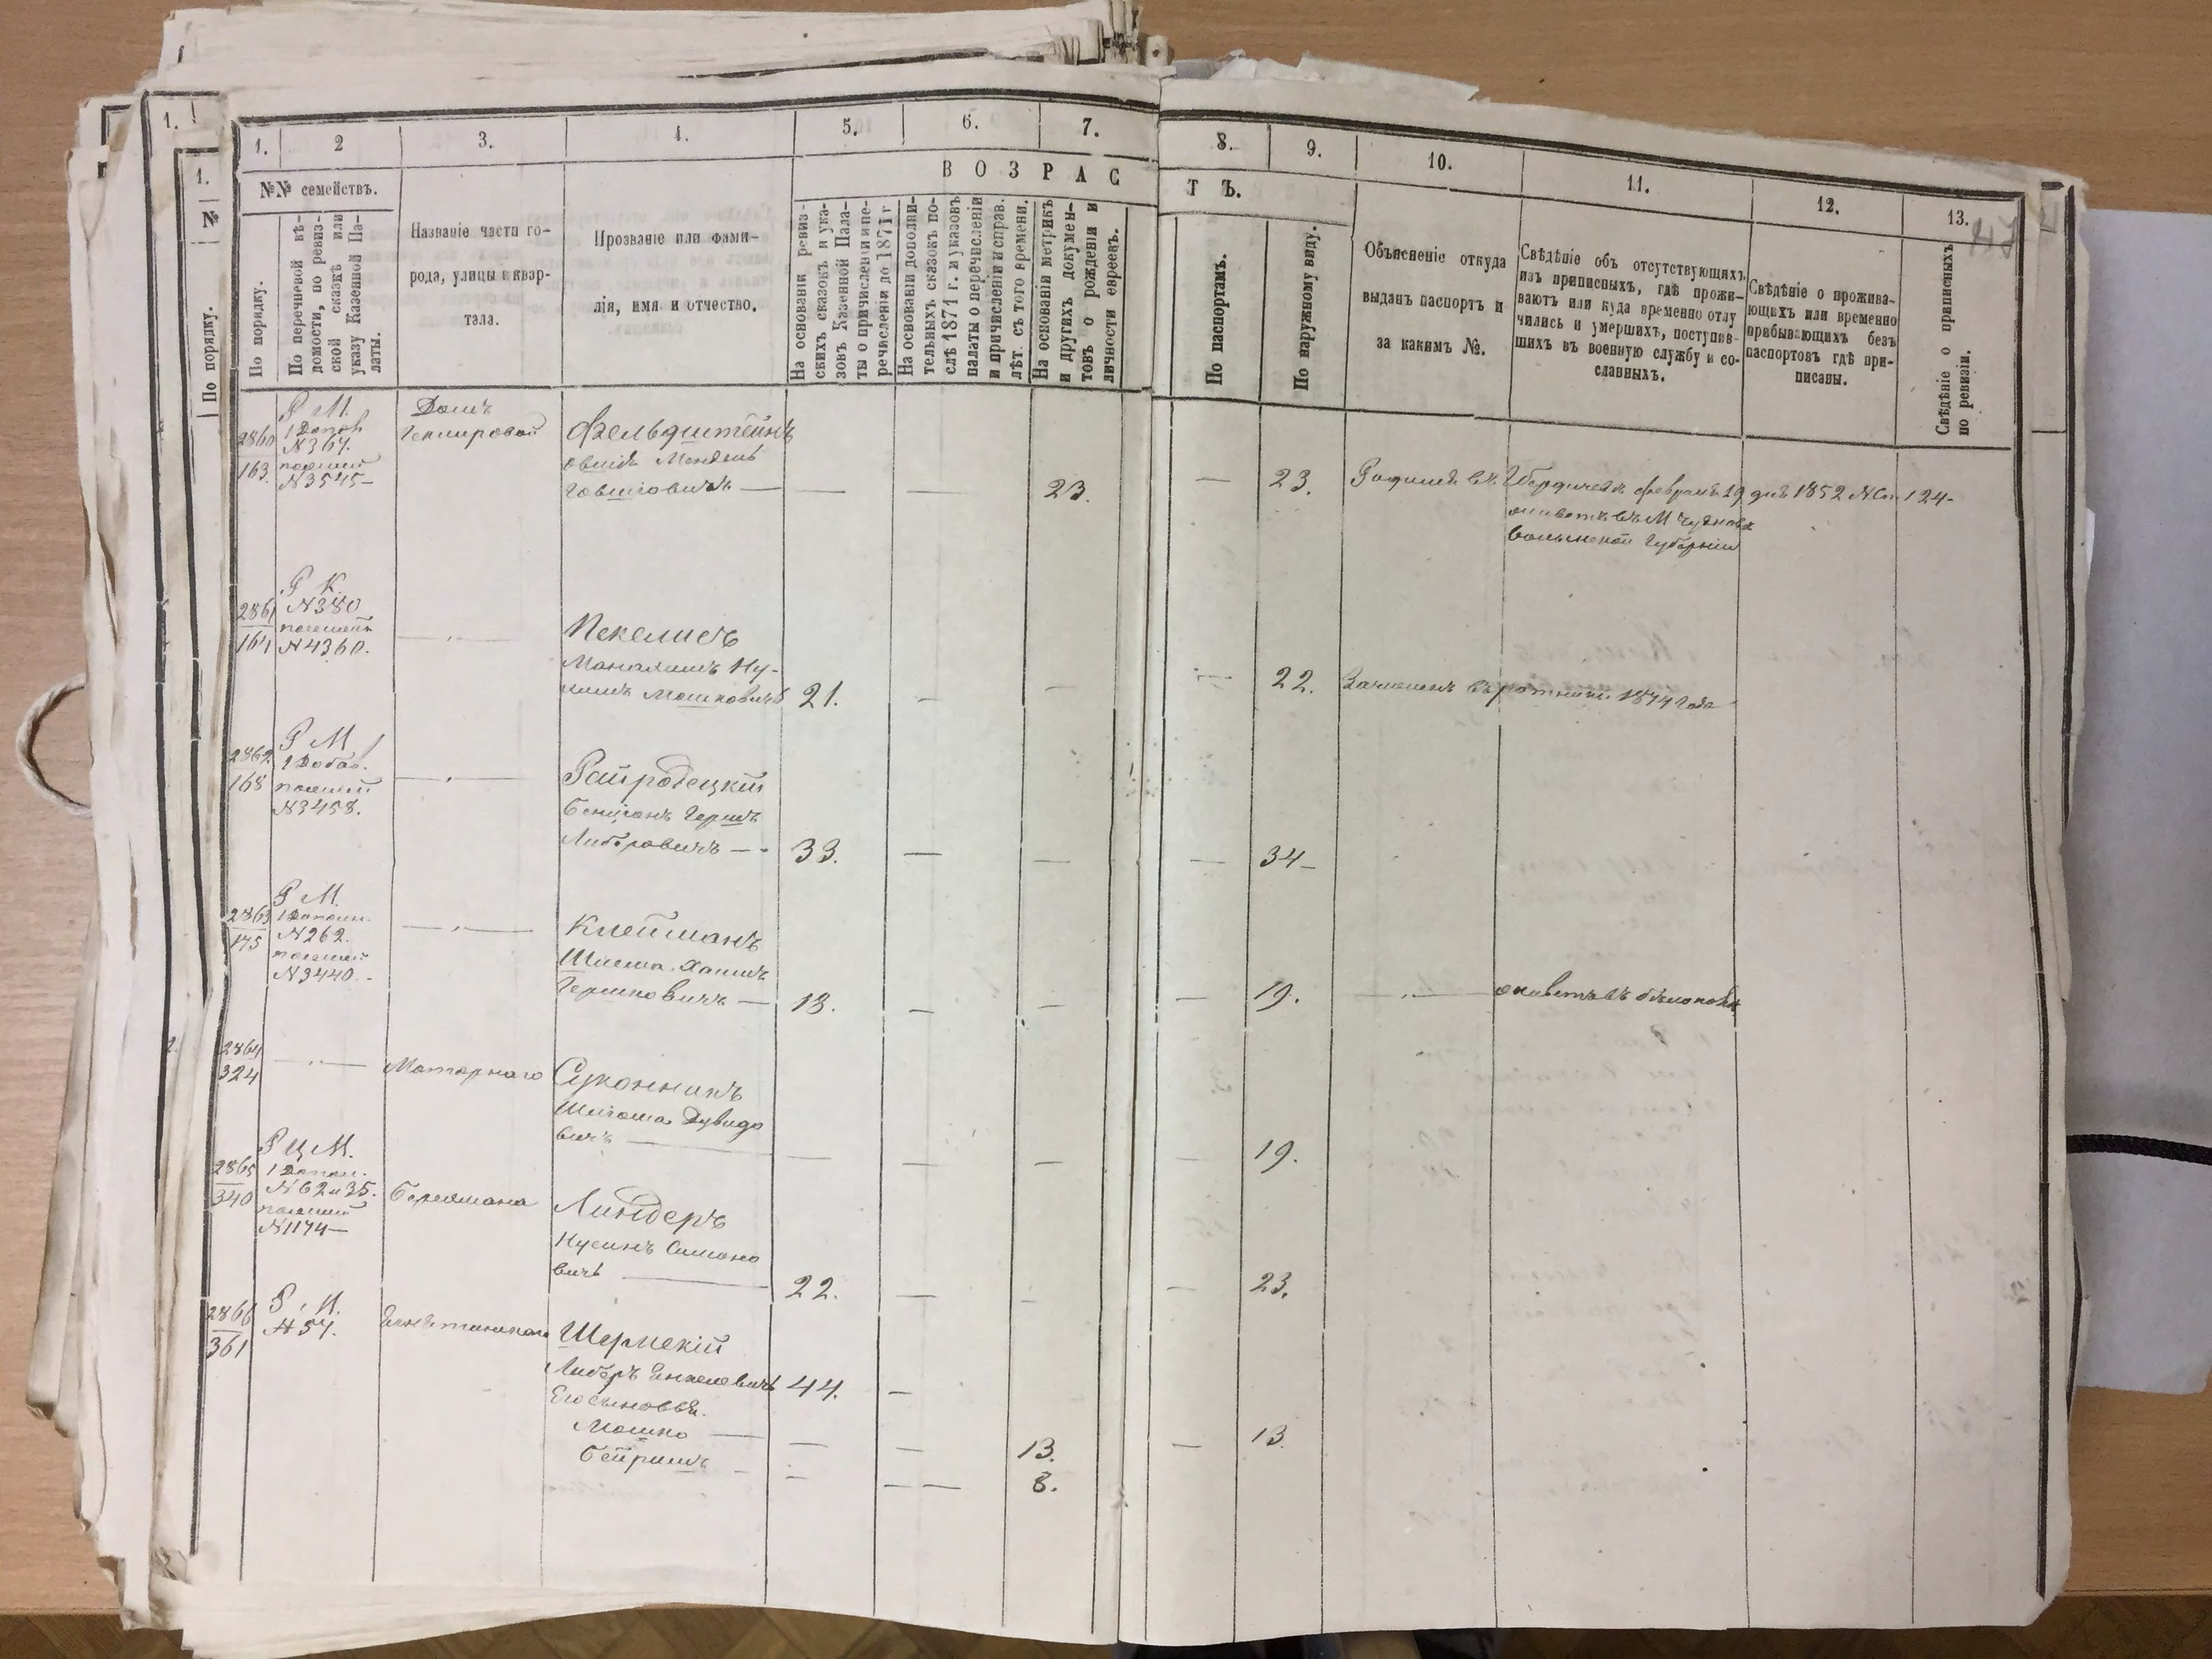 1.
1.
№
По порядку.
1.
2
3.
4.
5.
6.
7.
8.
9.
10.
11.
12.
13.
47
№№ семействъ.
ВОЗРАС
ТЪ.
По порядку.
По перечневой вѣ-
домости, по ревиз-
ской сказкѣ или
указу Казенной Па-
латы.
Названіе части го-
рода, улицы и квар-
тала.
Прозваніе или фами-
лія, имя и отчество.
На основаніи ревиз-
скихъ сказокъ и ука-
зовъ Казенной Пала-
ты о причисленіи и пе-
речисленіи до 1871 г
На основаніи дополни-
тельныхъ сказокъ по-
слѣ 1871 г. и указовъ
палаты о перечисленіи
и причисленіи и справ.
лѣт. съ того времени.
На основаніи метрикъ
и другихъ докумен-
товъ о рожденіи и
личности евреевъ.
По паспортамъ.
По наружному виду.
Объясненіе откуда
выданъ паспортъ и
за какимъ №.
Свѣдѣніе объ отсутствующихъ
изъ приписныхъ, гдѣ прожи-
ваютъ или куда временно отлу
чились и умершихъ, поступив-
шихъ въ военную службу и со-
сланныхъ.
Свѣдѣніе о прожива-
ющихъ или временно
прибывающихъ безъ
паспортовъ гдѣ при-
писаны.
Свѣдѣніе о приписныхъ
по ревизіи.
2860
163.
Р М.
1 Допол
N 364.
N 3545—
Домъ
Фельдштейнъ
Овшія Мендель
Іовшіовичъ —
—
—
23.
—
23.
Родился въ г Бердичевѣ февраля 19 дня 1852 N Сп. 124-
живетъ въ М Чудновѣ
Волынской Губерніи
2861
164
Р К.
N 380
N 4360.
— " —
Пекелисъ
Ну-
химъ Мошковичъ
21.
—
—
—
22.
Зачисленъ въ ратники 1874 года
2862
168
Р М
1 Добав.
N 3458.
— " —
Райродецкій
Бенціанъ Гершъ
Либеровичъ —
33.
—
—
—
34-
2863
175
Р М.
1 Дополн.
N 262.
N 3440.-
— " —
Клейманъ
Хаимъ
Гершковичъ —
18.
—
—
—
19.
— " —
живетъ въ
2864
324
— " —
Моторнаго
Суконникъ
Дувидо
вичъ —
—
—
—
—
19.
2865
340
Р Ц М.
1 Допол.
N 62 и 35.
N 1174—
Линдеръ
Нусинъ Симоно
вичъ —
22.
—
—
—
23.
2866
361
N 54.
Шермскій
Либеръ Янкелевичъ
44.
—
Его сыновья.
Мошко —
—
—
13.
—
13.
Бейришъ -
—
— —
8.